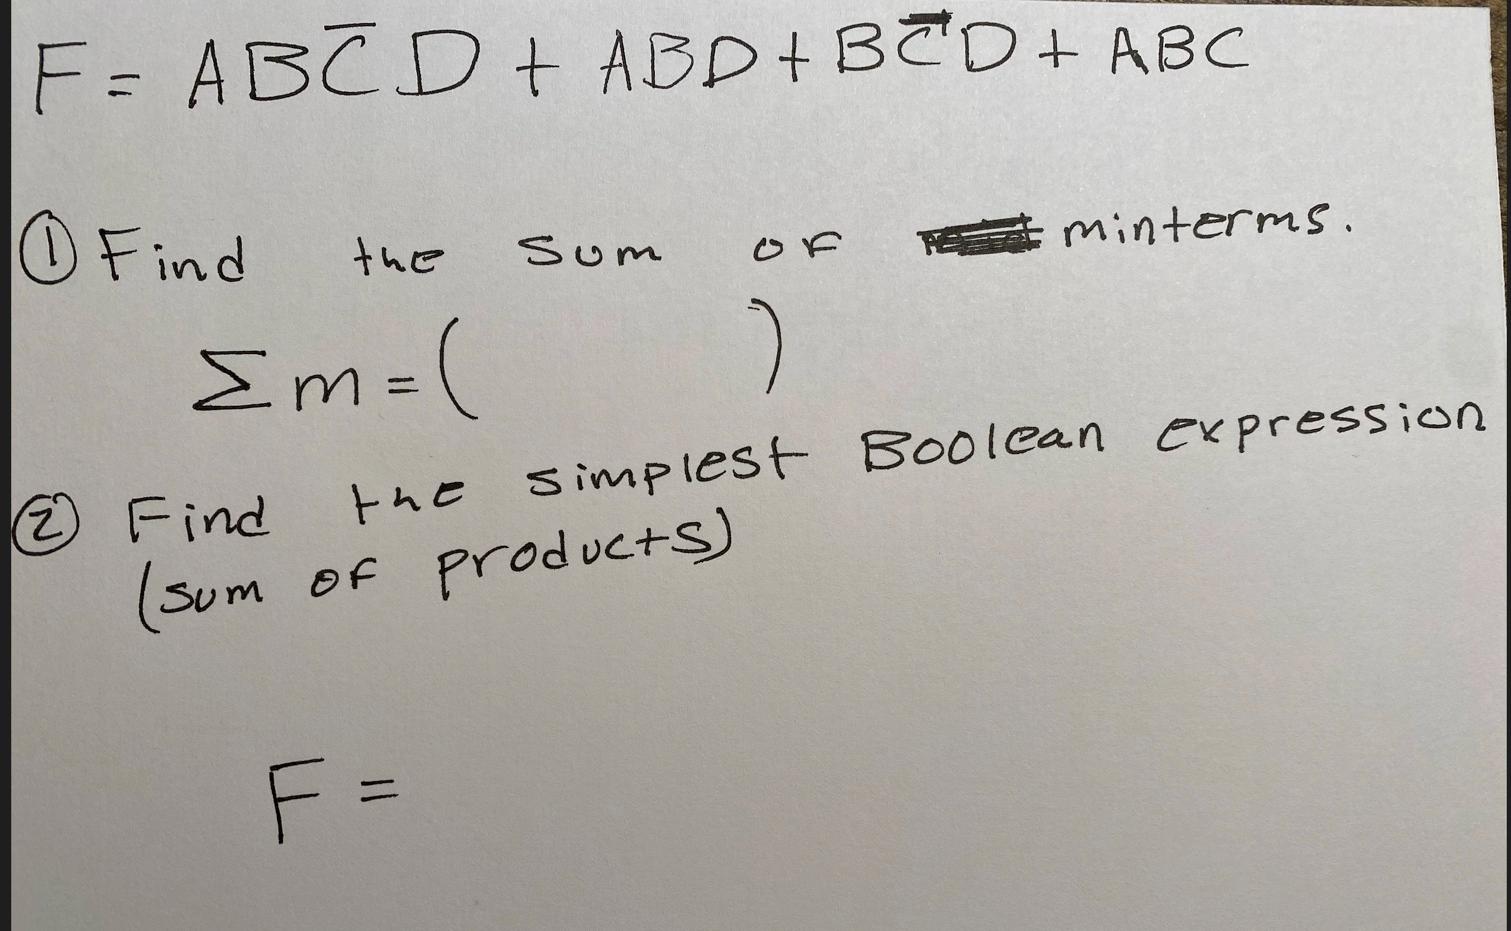 F = ABC̅D + ABD + BC̅D + ABC
① Find the sum of minterms.
Σm = ( )
② Find the simplest Boolean expression
(sum of products)
F =